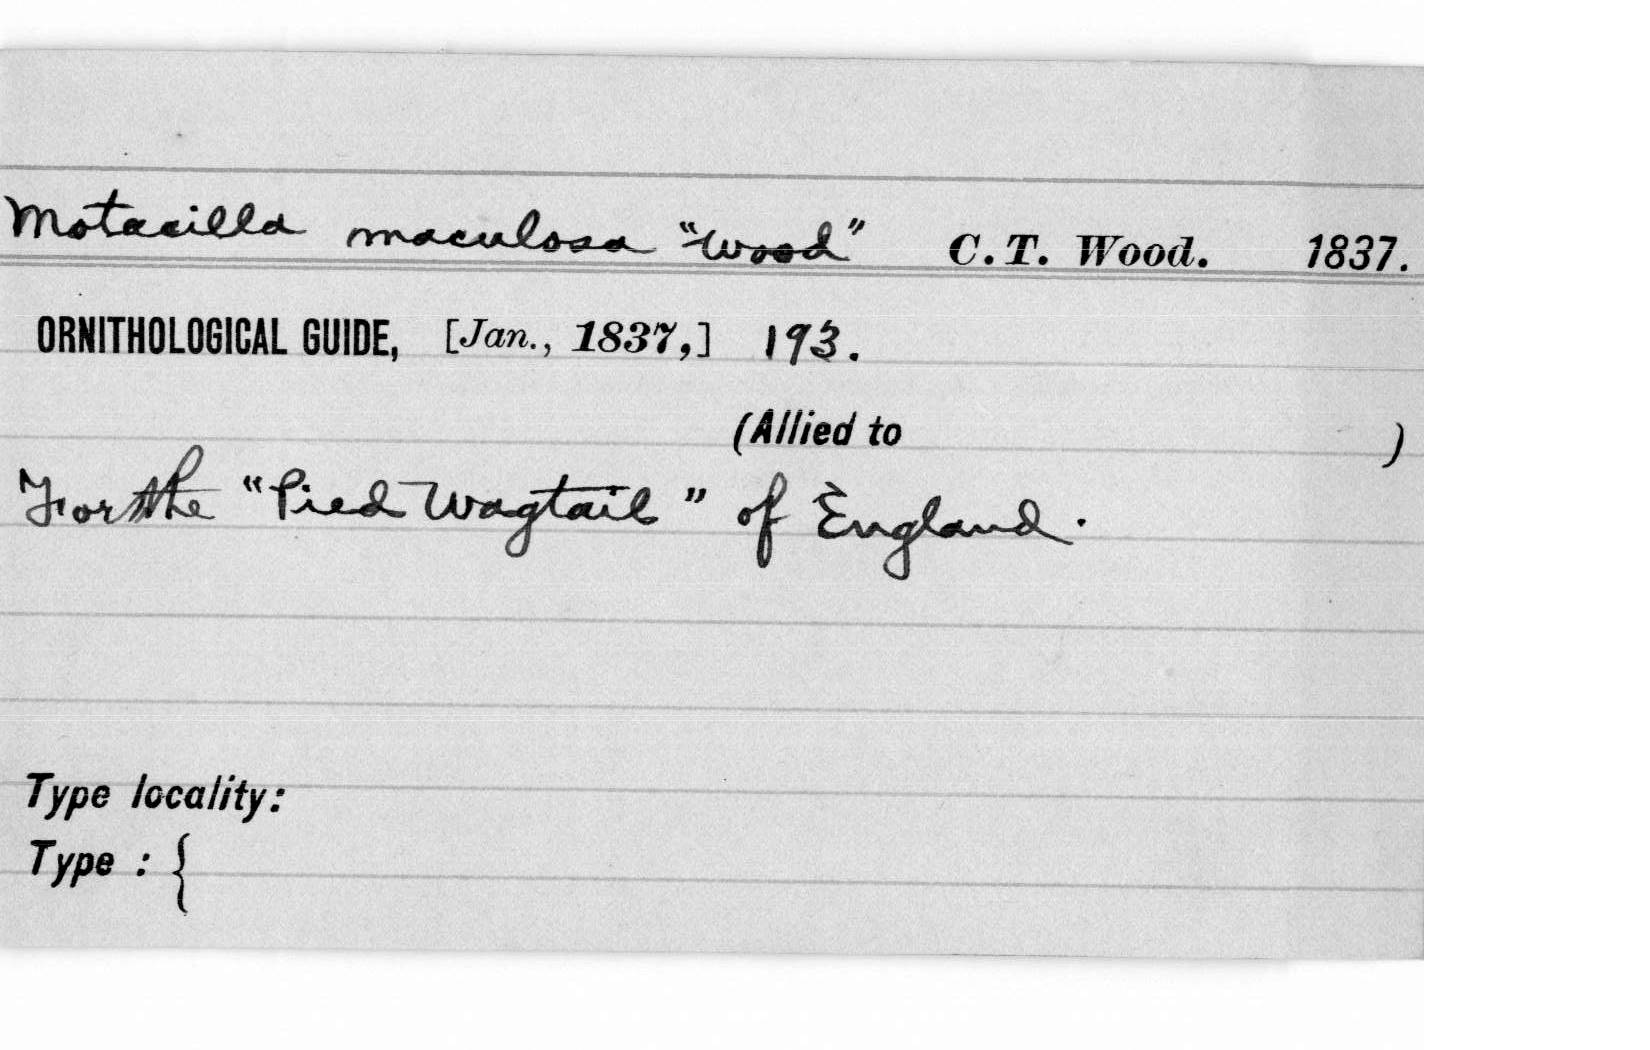 Motacilla maculosa "Wood" C. T. Wood. 1837.
ORNITHOLOGICAL GUIDE, [Jan., 1837,] 193.
(Allied to )
For the "Pied Wagtail" of England.
Type locality:
Type : {